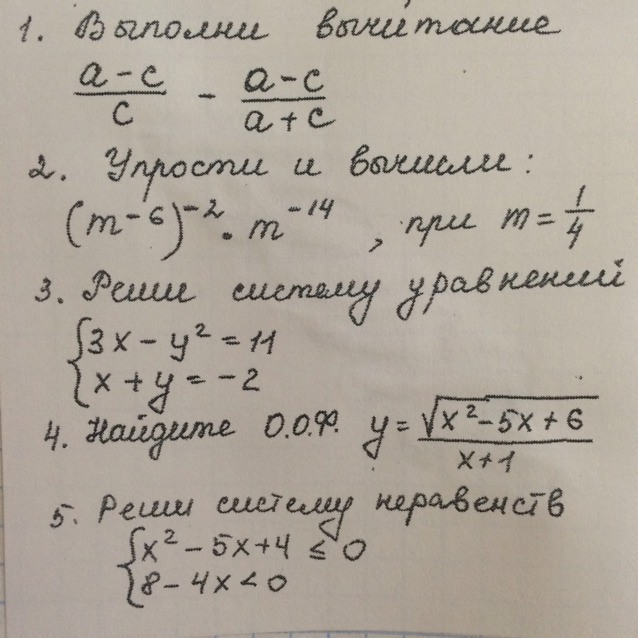 1. Выполни вычитание
(a-c)/c - (a-c)/(a+c)
2. Упрости и вычисли:
(m⁻⁶)⁻² · m⁻¹⁴, при m = 1/4
3. Реши систему уравнений
{3x - y² = 11
{x + y = -2
4. Найдите О.О.Ф. y = √(x² - 5x + 6)/(x+1)
5. Реши систему неравенств
{x² - 5x + 4 ≤ 0
{8 - 4x < 0